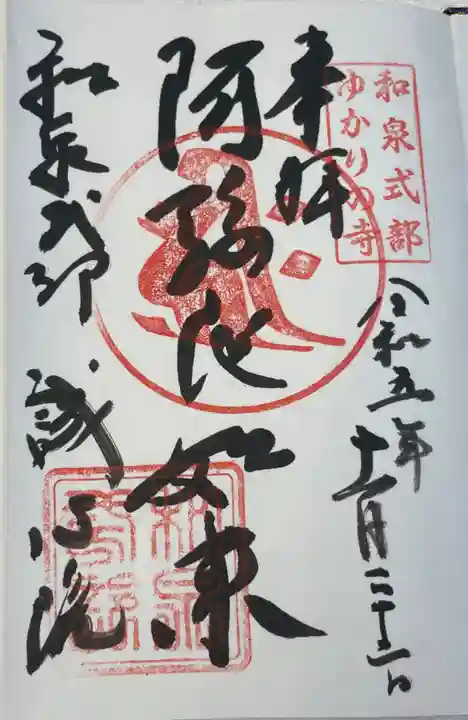 和泉式部
ゆかりの寺
奉拝
令和五年
十一月二十三日
阿弥陀如来
和泉式部 誠心院